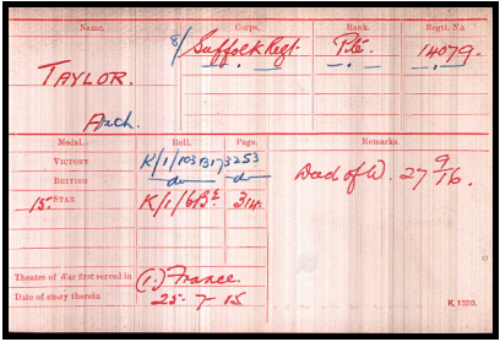 Name. Corps. Rank. Regtl. No.
8/ Suffolk Regt. Pte. 14079.
TAYLOR.
Arch.
Medal. Roll. Page. Remarks.
VICTORY K/1/103B17 3253
BRITISH do do
15 STAR K/1/6B 314
Died of W. 27 9/16.
Theatre of War first served in (1.) France.
Date of entry therein 25-7-15
K. 1380.